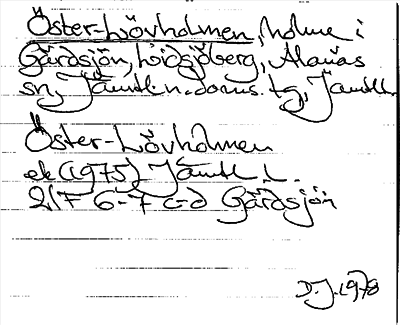 Öster-Lövholmen, holme i
Gårdsjön, Lövsjöberg, Alanäs
sn, Jämtl. n. doms. tg, Jämtl.
Öster-Lövholmen
ek (1975) Jämtl. L.
21F 6-7 c-d Gårdsjön
D.J. 1978